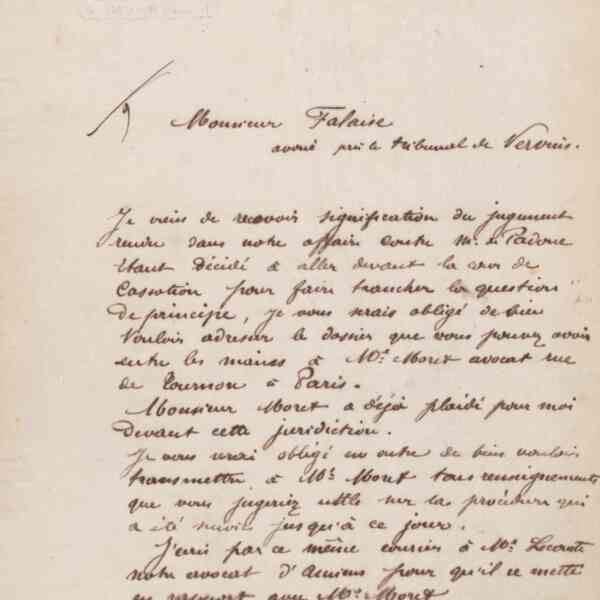 Monsieur Falaise
avoué près le tribunal de Vervins.
Je viens de recevoir signification du jugement
rendu dans notre affaire contre Mr. de Padoue
Etant décidé à aller devant la cour de
Cassation pour faire trancher la question
de principe, je vous serais obligé de bien
vouloir adresser le dossier que vous pouvez avoir
entre les mains à Me. Moret avocat rue
de Tournon à Paris.
Monsieur Moret a déjà plaidé pour moi
devant cette juridiction.
Je vous serai obligé en outre de bien vouloir
transmettre à Me. Moret tous renseignements
que vous jugeriez utiles sur la procédure qui
a été suivie jusqu'à ce jour.
J'écris par ce même courrier à Me.
notre avocat d'Amiens pour qu'il se mette
en rapport avec Me. Moret